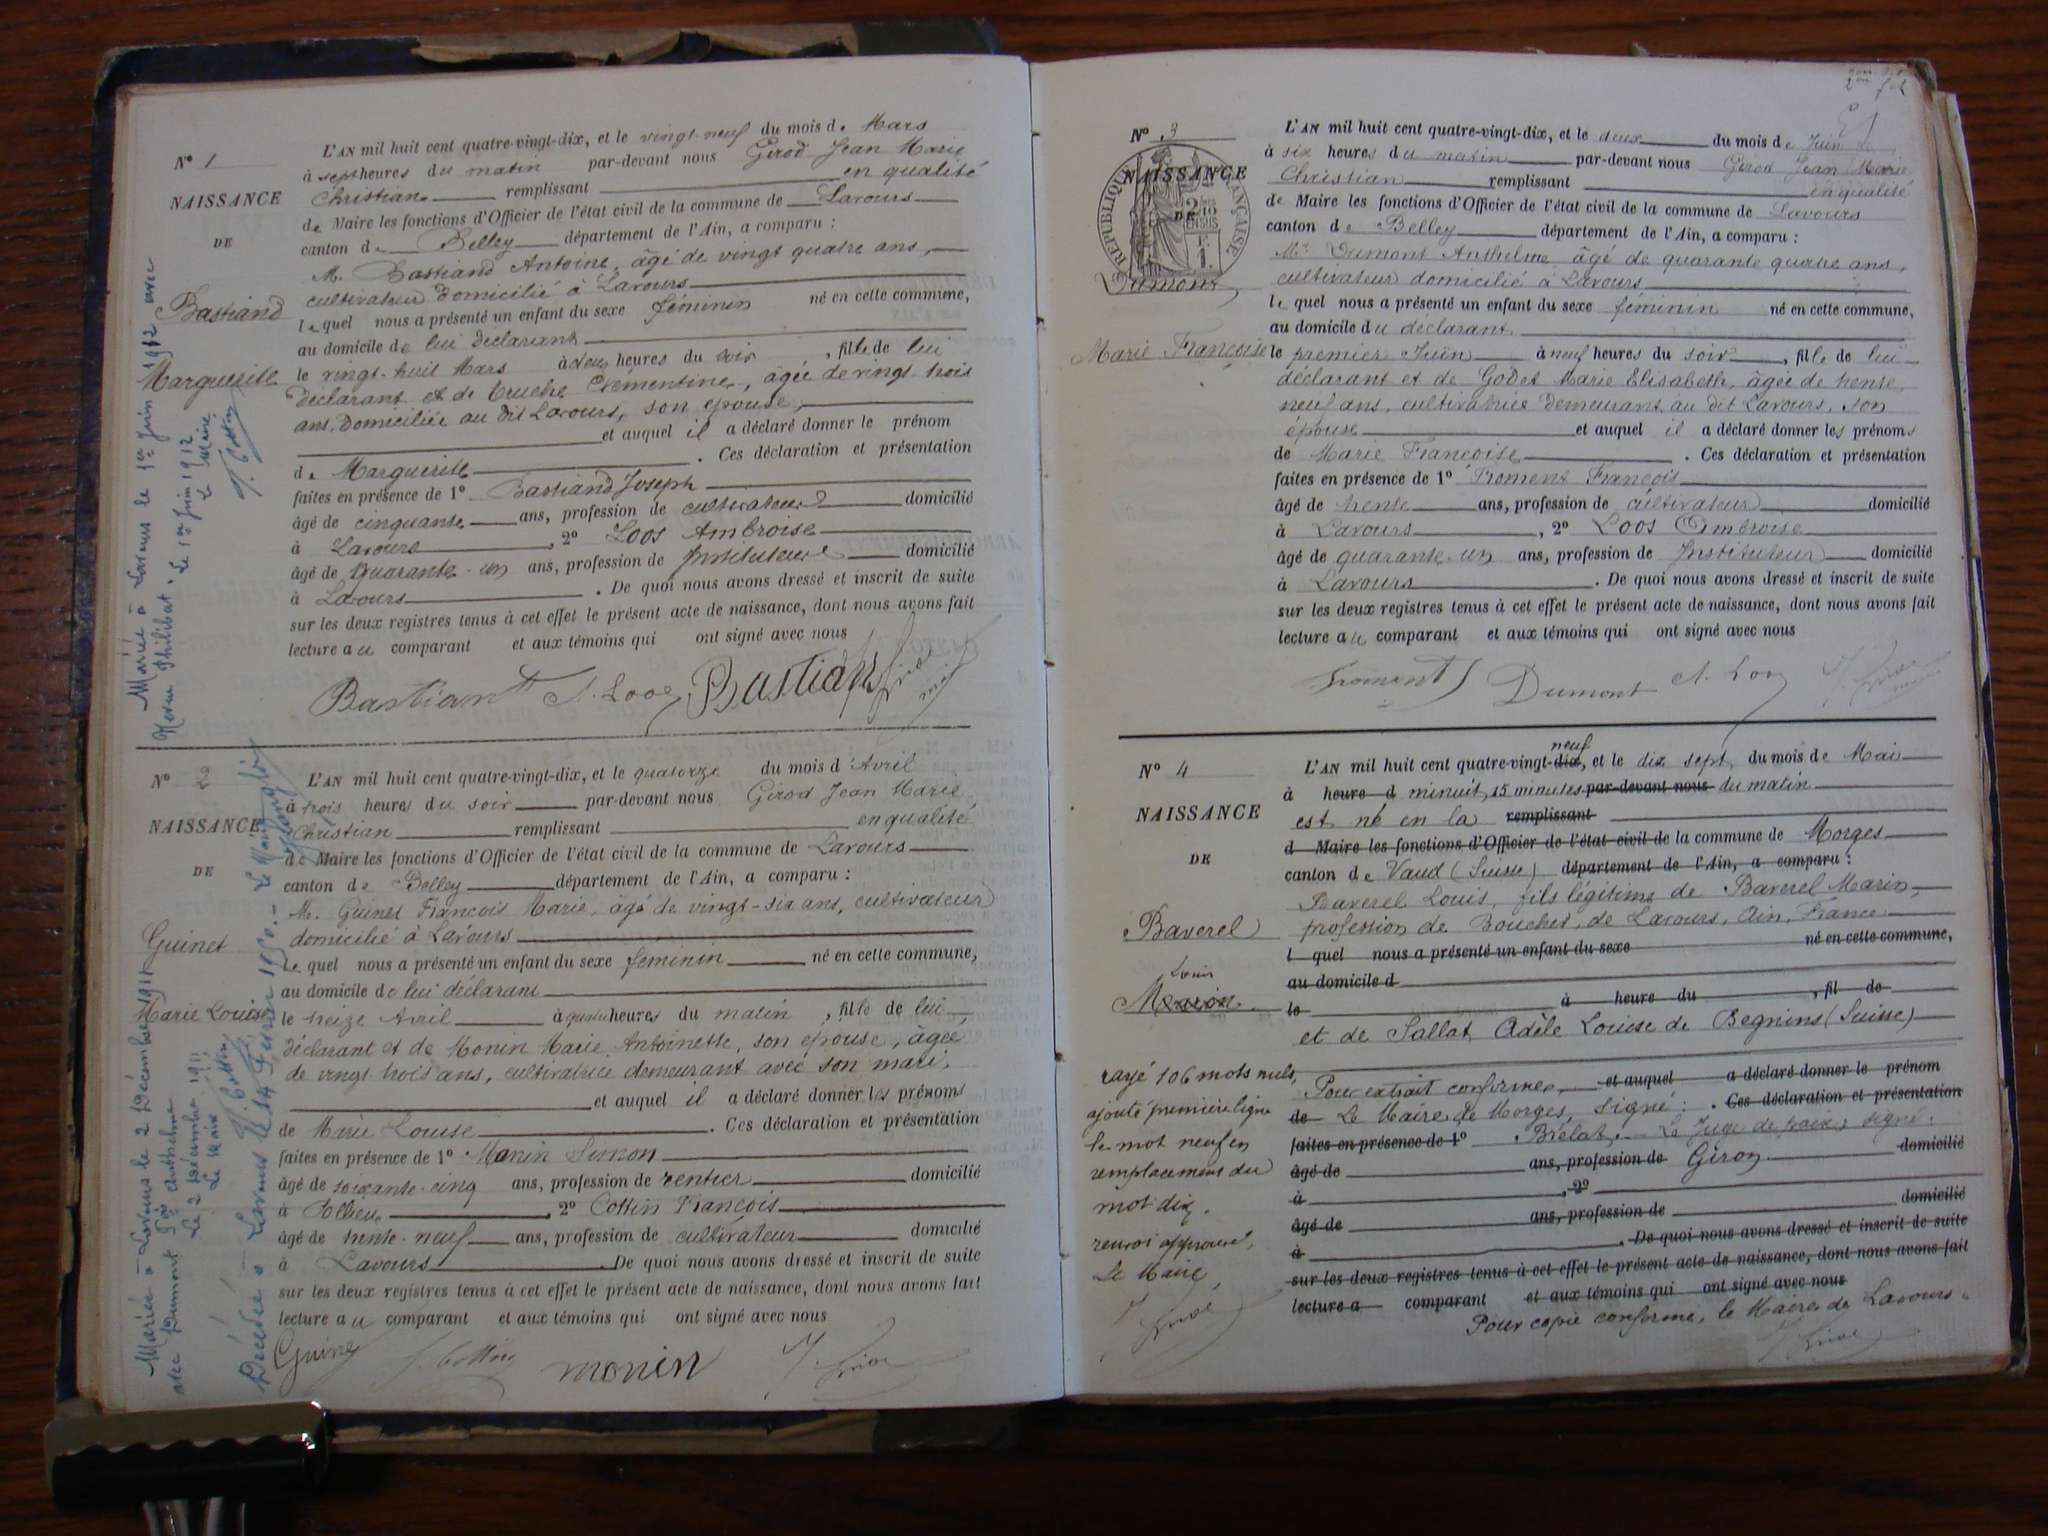 N° 1
NAISSANCE
DE
Bastiand
Marguerite
L'AN mil huit cent quatre-vingt-dix, et le vingt-neuf du mois de Mars
à sept heures du matin par-devant nous Girod Jean Marie
Christian remplissant en qualité
de Maire les fonctions d'Officier de l'état civil de la commune de Lavours
canton de Belley département de l'Ain, a comparu :
M. Bastiand Antoine, âgé de vingt quatre ans,
cultivateur domicilié à Lavours
lequel nous a présenté un enfant du sexe féminin né en cette commune,
au domicile de lui déclarant
le vingt-huit Mars à deux heures du soir, fille de lui
déclarant et de Cruche Clémentine, âgée de vingt trois
ans, domiciliée au dit Lavours, son épouse,
et auquel il a déclaré donner le prénom
de Marguerite. Ces déclaration et présentation
faites en présence de 1° Bastiand Joseph
âgé de cinquante ans, profession de cultivateur domicilié
à Lavours, 2° Loos Ambroise
âgé de quarante-un ans, profession de Instituteur domicilié
à Lavours. De quoi nous avons dressé et inscrit de suite
sur les deux registres tenus à cet effet le présent acte de naissance, dont nous avons fait
lecture au comparant et aux témoins qui ont signé avec nous
Bastiand A. Loos Bastiand
Mariée à Lavours le 1er Juin 1912 avec
Philibert. Le 1er Juin 1912
Le Maire,
J. Cottin
N° 2
NAISSANCE
DE
Guinet
Marie Louise
L'AN mil huit cent quatre-vingt-dix, et le quatorze du mois d'Avril
à trois heures du soir par-devant nous Girod Jean Marie
Christian remplissant en qualité
de Maire les fonctions d'Officier de l'état civil de la commune de Lavours
canton de Belley département de l'Ain, a comparu :
M. Guinet François Marie, âgé de vingt-six ans, cultivateur
domicilié à Lavours
lequel nous a présenté un enfant du sexe féminin né en cette commune,
au domicile de lui déclarant
le treize Avril à quatre heures du matin, fille de lui
déclarant et de Monin Marie Antoinette, son épouse, âgée
de vingt trois ans, cultivatrice demeurant avec son mari,
et auquel il a déclaré donner les prénoms
de Marie Louise. Ces déclaration et présentation
faites en présence de 1° Monin Simon
âgé de soixante-cinq ans, profession de rentier domicilié
à Pollieu, 2° Cottin François
âgé de trente-neuf ans, profession de cultivateur domicilié
à Lavours. De quoi nous avons dressé et inscrit de suite
sur les deux registres tenus à cet effet le présent acte de naissance, dont nous avons fait
lecture au comparant et aux témoins qui ont signé avec nous
Guinet f. Cottin monin
Mariée à Lavours le 2 Décembre 1911
avec Dumont Anthelme
Le 2 Décembre 1911
Le Maire
J. Cottin
Décédée à Lavours le 14 1950. Le Maire
N° 3
NAISSANCE
DE
RÉPUBLIQUE FRANÇAISE
Dumont
Marie Françoise
L'AN mil huit cent quatre-vingt-dix, et le deux du mois de Juin
à six heures du matin par-devant nous Girod Jean Marie
Christian remplissant en qualité
de Maire les fonctions d'Officier de l'état civil de la commune de Lavours
canton de Belley département de l'Ain, a comparu :
Mr Dumont Anthelme âgé de quarante quatre ans,
cultivateur domicilié à Lavours
lequel nous a présenté un enfant du sexe féminin né en cette commune,
au domicile du déclarant
le premier Juin à neuf heures du soir, fille de lui
déclarant et de Godet Marie Elisabeth, âgée de trente
neuf ans, cultivatrice demeurant au dit Lavours, son
épouse et auquel il a déclaré donner les prénoms
de Marie Françoise. Ces déclaration et présentation
faites en présence de 1° Froment François
âgé de trente ans, profession de cultivateur domicilié
à Lavours, 2° Loos Ambroise
âgé de quarante-un ans, profession de Instituteur domicilié
à Lavours. De quoi nous avons dressé et inscrit de suite
sur les deux registres tenus à cet effet le présent acte de naissance, dont nous avons fait
lecture au comparant et aux témoins qui ont signé avec nous
Froment Dumont A. Loos
N° 4
NAISSANCE
DE
Baverel
Louis
Marin
neuf
L'AN mil huit cent quatre-vingt-dix, et le dix sept du mois de Mai
à heure d minuit, 15 minutes par-devant nous du matin
est né en la remplissant
d Maire les fonctions d'Officier de l'état civil de la commune de Morges
canton de Vaud (Suisse) département de l'Ain, a comparu :
Baverel Louis, fils légitime de Baverel Marin,
profession de Boucher, de Lavours, Ain, France
l quel nous a présenté un enfant du sexe né en cette commune,
au domicile d
le à heure du, fil de
et de Sallat, Adèle Louise de Begnins (Suisse)
Pour extrait conforme, et auquel a déclaré donner le prénom
de Le Maire de Morges, signé : . Ces déclaration et présentation
faites en présence de 1° Brélat. Le Juge de paix signé.
âgé de ans, profession de Giron domicilié
à, 2°
âgé de ans, profession de domicilié
à. De quoi nous avons dressé et inscrit de suite
sur les deux registres tenus à cet effet le présent acte de naissance, dont nous avons fait
lecture a comparant et aux témoins qui ont signé avec nous
Pour copie conforme, le Maire de Lavours.
rayé 106 mots nuls,
ajouté première ligne
le mot neuf en
remplacement du
mot dix.
renvoi approuvé,
Le Maire,